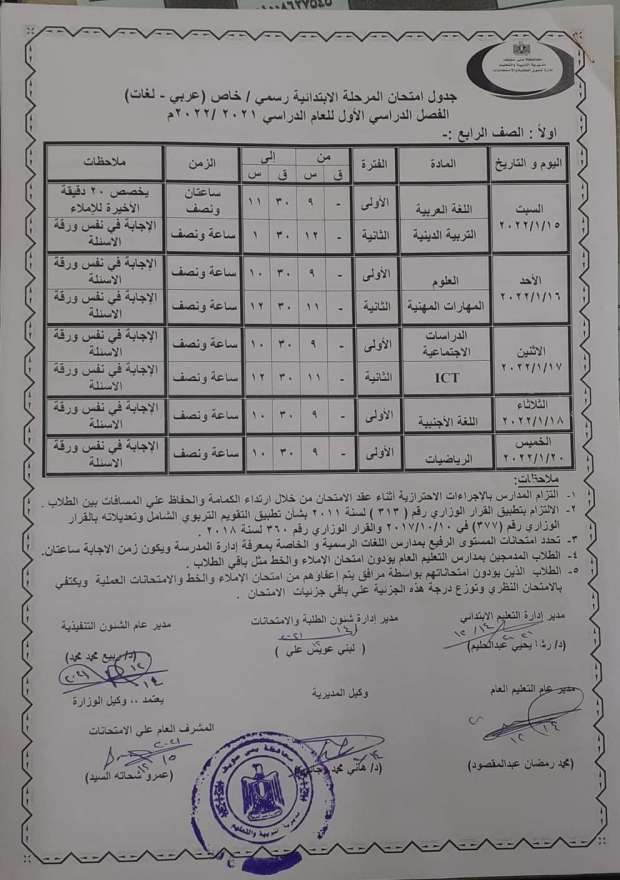 محافظة بنى سويف
مديرية التربية والتعليم
جدول امتحان المرحلة الابتدائية رسمي / خاص (عربي - لغات)
الفصل الدراسي الأول للعام الدراسي ٢٠٢١ /٢٠٢٢م
اولاً : الصف الرابع :-
اليوم و التاريخ المادة الفترة من إلى الزمن ملاحظات
ق س ق س
السبت ٢٠٢٢/١/١٥ اللغة العربية الأولى - ٩ ٣٠ ١١ ساعتان ونصف يخصص ٢٠ دقيقة الأخيرة للإملاء
التربية الدينية الثانية - ١٢ ٣٠ ١ ساعة ونصف الإجابة في نفس ورقة الاسئلة
الأحد ٢٠٢٢/١/١٦ العلوم الأولى - ٩ ٣٠ ١٠ ساعة ونصف الإجابة في نفس ورقة الاسئلة
المهارات المهنية الثانية - ١١ ٣٠ ١٢ ساعة ونصف الإجابة في نفس ورقة الاسئلة
الاثنين ٢٠٢٢/١/١٧ الدراسات الاجتماعية الأولى - ٩ ٣٠ ١٠ ساعة ونصف الإجابة في نفس ورقة الاسئلة
ICT الثانية - ١١ ٣٠ ١٢ ساعة ونصف الإجابة في نفس ورقة الاسئلة
الثلاثاء ٢٠٢٢/١/١٨ اللغة الأجنبية الأولى - ٩ ٣٠ ١٠ ساعة ونصف الإجابة في نفس ورقة الاسئلة
الخميس ٢٠٢٢/١/٢٠ الرياضيات الأولى - ٩ ٣٠ ١٠ ساعة ونصف الإجابة في نفس ورقة الاسئلة
ملاحظات:
١- التزام المدارس بالإجراءات الاحترازية أثناء عقد الامتحان من خلال ارتداء الكمامة والحفاظ علي المسافات بين الطلاب .
٢- الالتزام بتطبيق القرار الوزاري رقم ( ٣١٣ ) لسنة ٢٠١١ بشأن تطبيق التقويم التربوي الشامل وتعديلاته بالقرار
الوزاري رقم (٣٧٧) في ٢٠١٧/١٠/١٠ والقرار الوزاري رقم ٣٦٠ لسنة ٢٠١٨ .
٣- تحدد امتحانات المستوى الرفيع بمدارس اللغات الرسمية و الخاصة بمعرفة إدارة المدرسة ويكون زمن الاجابة ساعتان.
٤- الطلاب المدمجين بمدارس التعليم العام يودون امتحان الإملاء والخط مثل باقي الطلاب .
٥- الطلاب الذين يودون امتحاناتهم بواسطة مرافق يتم إعفاوهم من امتحان الإملاء والخط والامتحانات العملية ويكتفي
بالامتحان النظري وتوزع درجة هذه الجزئية علي باقي جزئيات الامتحان .
مدير إدارة التعليم الابتدائي مدير إدارة شئون الطلبة والامتحانات مدير عام الشئون التنفيذية
(د/ رشا يحيي عبدالحليم) ( لبني عويس علي ) (د/ ربيع محمد محمد)
مدير عام التعليم العام وكيل المديرية يعتمد ،، وكيل الوزارة
المشرف العام علي الامتحانات
(محمد رمضان عبدالمقصود) (د/ هاني محمد) (عمرو شحاته السيد)
محافظة بنى سويف
مديرية التربية والتعليم